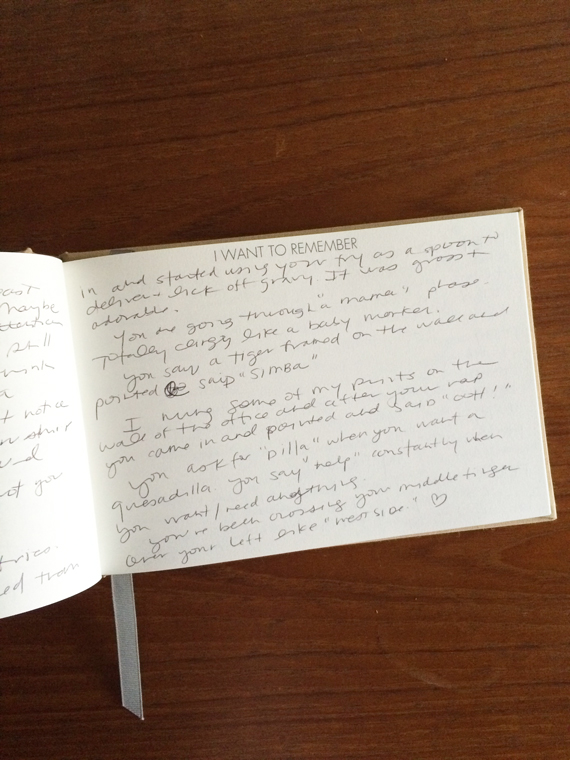 east
maybe
still
think
a
t not a
got you
ed from
I WANT TO REMEMBER
in and started using your fry as a spoon to
deliver + lick off gravy. It was gross +
adorable.
You are going through "a mama" phase.
Totally clingy like a baby monkey.
you saw a tiger framed on the wall and
pointed said "SIMBA"
I hung some of my prints on the
wall of the office and after your nap
you came in and pointed and said "ott!"
you ask for "Dilla" when you want a
quesadilla you say "help" constantly when
you want/need anything.
you've been crossing your middle finger
over your left like "west side." ♡